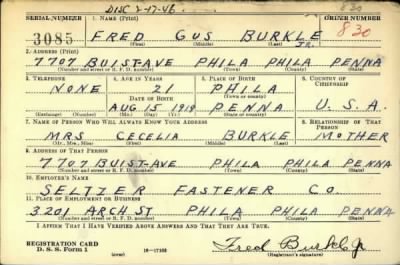 DISC 2-17-46. 830
SERIAL NUMBER 1. NAME (Print) ORDER NUMBER
3085 FRED GUS BURKLE JR. 830
(First) (Middle) (Last)
2. ADDRESS (Print)
7707 BUIST-AVE PHILA PHILA PENNA
(Number and street or R. F. D. number) (Town) (County) (State)
3. TELEPHONE 4. AGE IN YEARS 5. PLACE OF BIRTH 6. COUNTRY OF CITIZENSHIP
NONE 21 PHILA
DATE OF BIRTH (Town or county)
AUG 15 1919 PENNA U.S.A.
(Exchange) (Number) (Mo.) (Day) (Yr.) (State or country)
7. NAME OF PERSON WHO WILL ALWAYS KNOW YOUR ADDRESS 8. RELATIONSHIP OF THAT PERSON
MRS CECELIA BURKLE MOTHER
(Mr., Mrs., Miss) (First) (Middle) (Last)
9. ADDRESS OF THAT PERSON
7707 BUIST-AVE PHILA PHILA PENNA
(Number and street or R. F. D. number) (Town) (County) (State)
10. EMPLOYER'S NAME
SELTZER FASTENER CO.
11. PLACE OF EMPLOYMENT OR BUSINESS
3201 ARCH ST PHILA PHILA PENNA
(Number and street or R. F. D. number) (Town) (County) (State)
I AFFIRM THAT I HAVE VERIFIED ABOVE ANSWERS AND THAT THEY ARE TRUE.
REGISTRATION CARD
D. S. S. Form 1 (over) Fred Burkle Jr
(Registrant's signature)